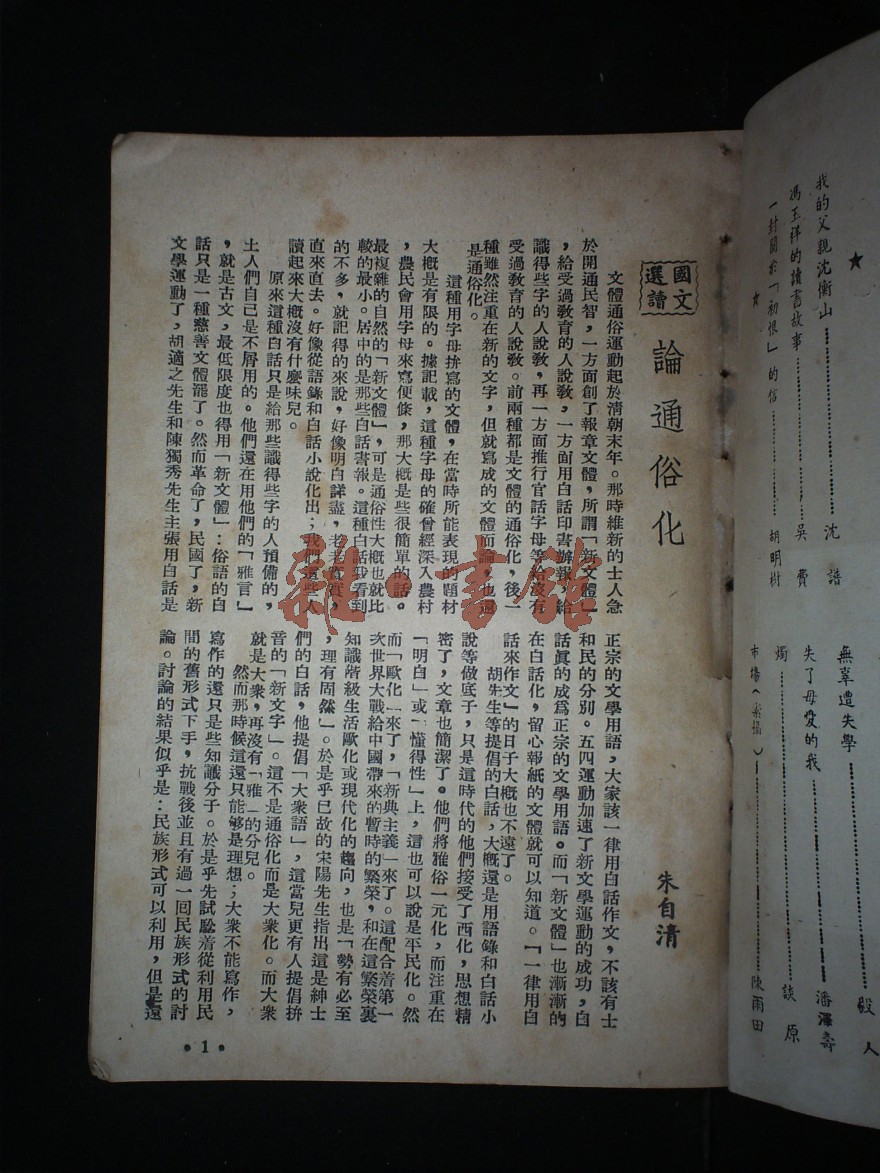 我的父親沈衡山…………沈譜
★
馮玉祥的讀書故事…………吳費
一封關於「初恨」的信…………胡明樹
★
無辜遭失學…………殷人
失了母愛的我…………潘澤壽
燭…………談原
市場(素描)…………陳雨田
國文
選讀
論通俗化
朱自清
文體通俗運動起於清朝末年。那時維新的士人急
於開通民智,一方面創了報章文體,所謂「新文體」
,給受過敎育的人說敎,一方面用白話印書辦報,給
識得些字的人說敎,再一方面推行官話字母等給沒有
受過敎育的人說敎。前兩種都是文體的通俗化,後一
種雖然注重在新的文字,但就寫成的文體而論,也還
是通俗化。
這種用字母拼寫的文體,在當時所能表現的題材
大槪是有限的。據記載,這種字母的確曾經深入農村
,農民會用字母來寫便條,那大槪是些很簡單的話。
最複雜的自然的「新文體」,可是通俗性大槪也就比
較的最小。居中的是那些白話書報。這種白話我看到
的不多,就記得的來說,好像明白詳盡,老老實實,
直來直去。好像從語錄和白話小說化出;我們這些人
讀起來大槪沒有什麼味兒。
原來這種白話只是給那些識得些字的人預備的,
士人們自己是不屑用的。他們還在用他們的「雅言」
,就是古文,最低限度也得用「新文體」:俗語的白
話只是一種慈善文體罷了。然而革命了,民國了,新
文學運動了,胡適之先生和陳獨秀先生主張用白話是
正宗的文學用語,大家該一律用白話作文,不該有士
和民的分別。五四運動加速了新文學運動的成功,白
話眞的成爲正宗的文學用語。而「新文體」也漸漸的
在白話化,留心報紙的文體就可以知道。「一律用白
話來作文」的日子大槪也不遠了。
胡先生等提倡的白話,大槪還是用語錄和白話小
說等做底子,只是這時代的他們接受了西化,思想精
密了,文章也簡潔了。他們將雅俗一元化,而注重在
「明白」或「懂得性」上,這也可以說是平民化。然
而「歐化」來了,「新典主義」來了。這配合着第一
次世界大戰給中國帶來的暫時的繁榮,和在這繁榮裏
知識階級生活歐化或現代化的趨向,也是「勢有必至
,理有固然」。於是乎已故的宋陽先生指出這是紳士
們的白話,他提倡「大衆語」,這當兒更有人提倡拚
音的「新文字」。這不是通俗化而是大衆化。而大衆
就是大衆,再沒有「雅」的分兒。
然而那時候這還只能夠是理想;大衆不能寫作,
寫作的還只是些知識分子。於是乎先試驗着從利用民
間的舊形式下手,抗戰後並且有過一回民族形式的討
論。討論的結果似乎是:民族形式可以利用,但是還
•1•
雜·書館